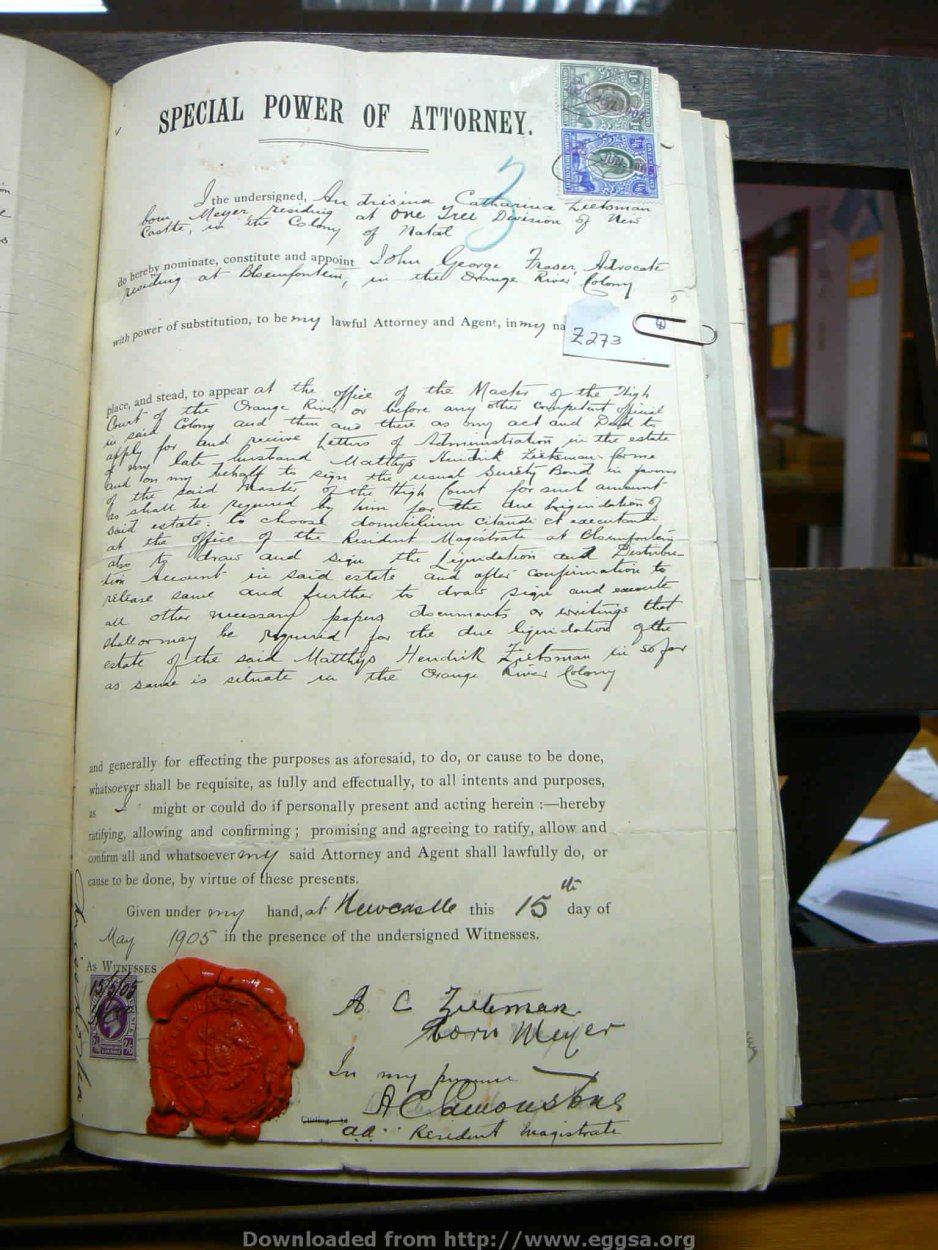 SPECIAL POWER OF ATTORNEY.
3
I the undersigned, Andrisina Catharina Zietsman
born Meyer residing at One Tree Division of New
Castle, in the Colony of Natal
do hereby nominate, constitute and appoint John George Fraser, Advocate
residing at Bloemfontein, in the Orange River Colony
with power of substitution, to be my lawful Attorney and Agent, in my na
Z273
place, and stead, to appear at the office of the Master of the High
Court of the Orange River or before any other competent official
in said Colony and then and there as my act and Deed to
apply for and receive Letters of Administration in the estate
of my late husband Matthys Hendrik Zietsman
and on my behalf to sign the usual Surety Bond in favour
of the said Master of the High Court for such amount
as shall be required by him for the due liquidation of
said estate. to choose domicilium citandi et executandi
at the office of the Resident Magistrate at Bloemfontein
also to draw and sign the Liquidation and Distribu-
tion Account in said estate and after confirmation to
release same and further to draw sign and execute
all other necessary papers documents or writings that
shall or may be required for the due liquidation of the
estate of the said Matthys Hendrik Zietsman in so far
as same is situate in the Orange River Colony
and generally for effecting the purposes as aforesaid, to do, or cause to be done,
whatsoever shall be requisite, as fully and effectually, to all intents and purposes,
as I might or could do if personally present and acting herein :—hereby
ratifying, allowing and confirming ; promising and agreeing to ratify, allow and
confirm all and whatsoever my said Attorney and Agent shall lawfully do, or
cause to be done, by virtue of these presents.
Given under my hand, at Newcastle this 15th day of
May 1905 in the presence of the undersigned Witnesses.
As WITNESSES
15/5/05
A C Zietsman
born Meyer
In my presence
a.a. Resident Magistrate
Downloaded from http://www.eggsa.org